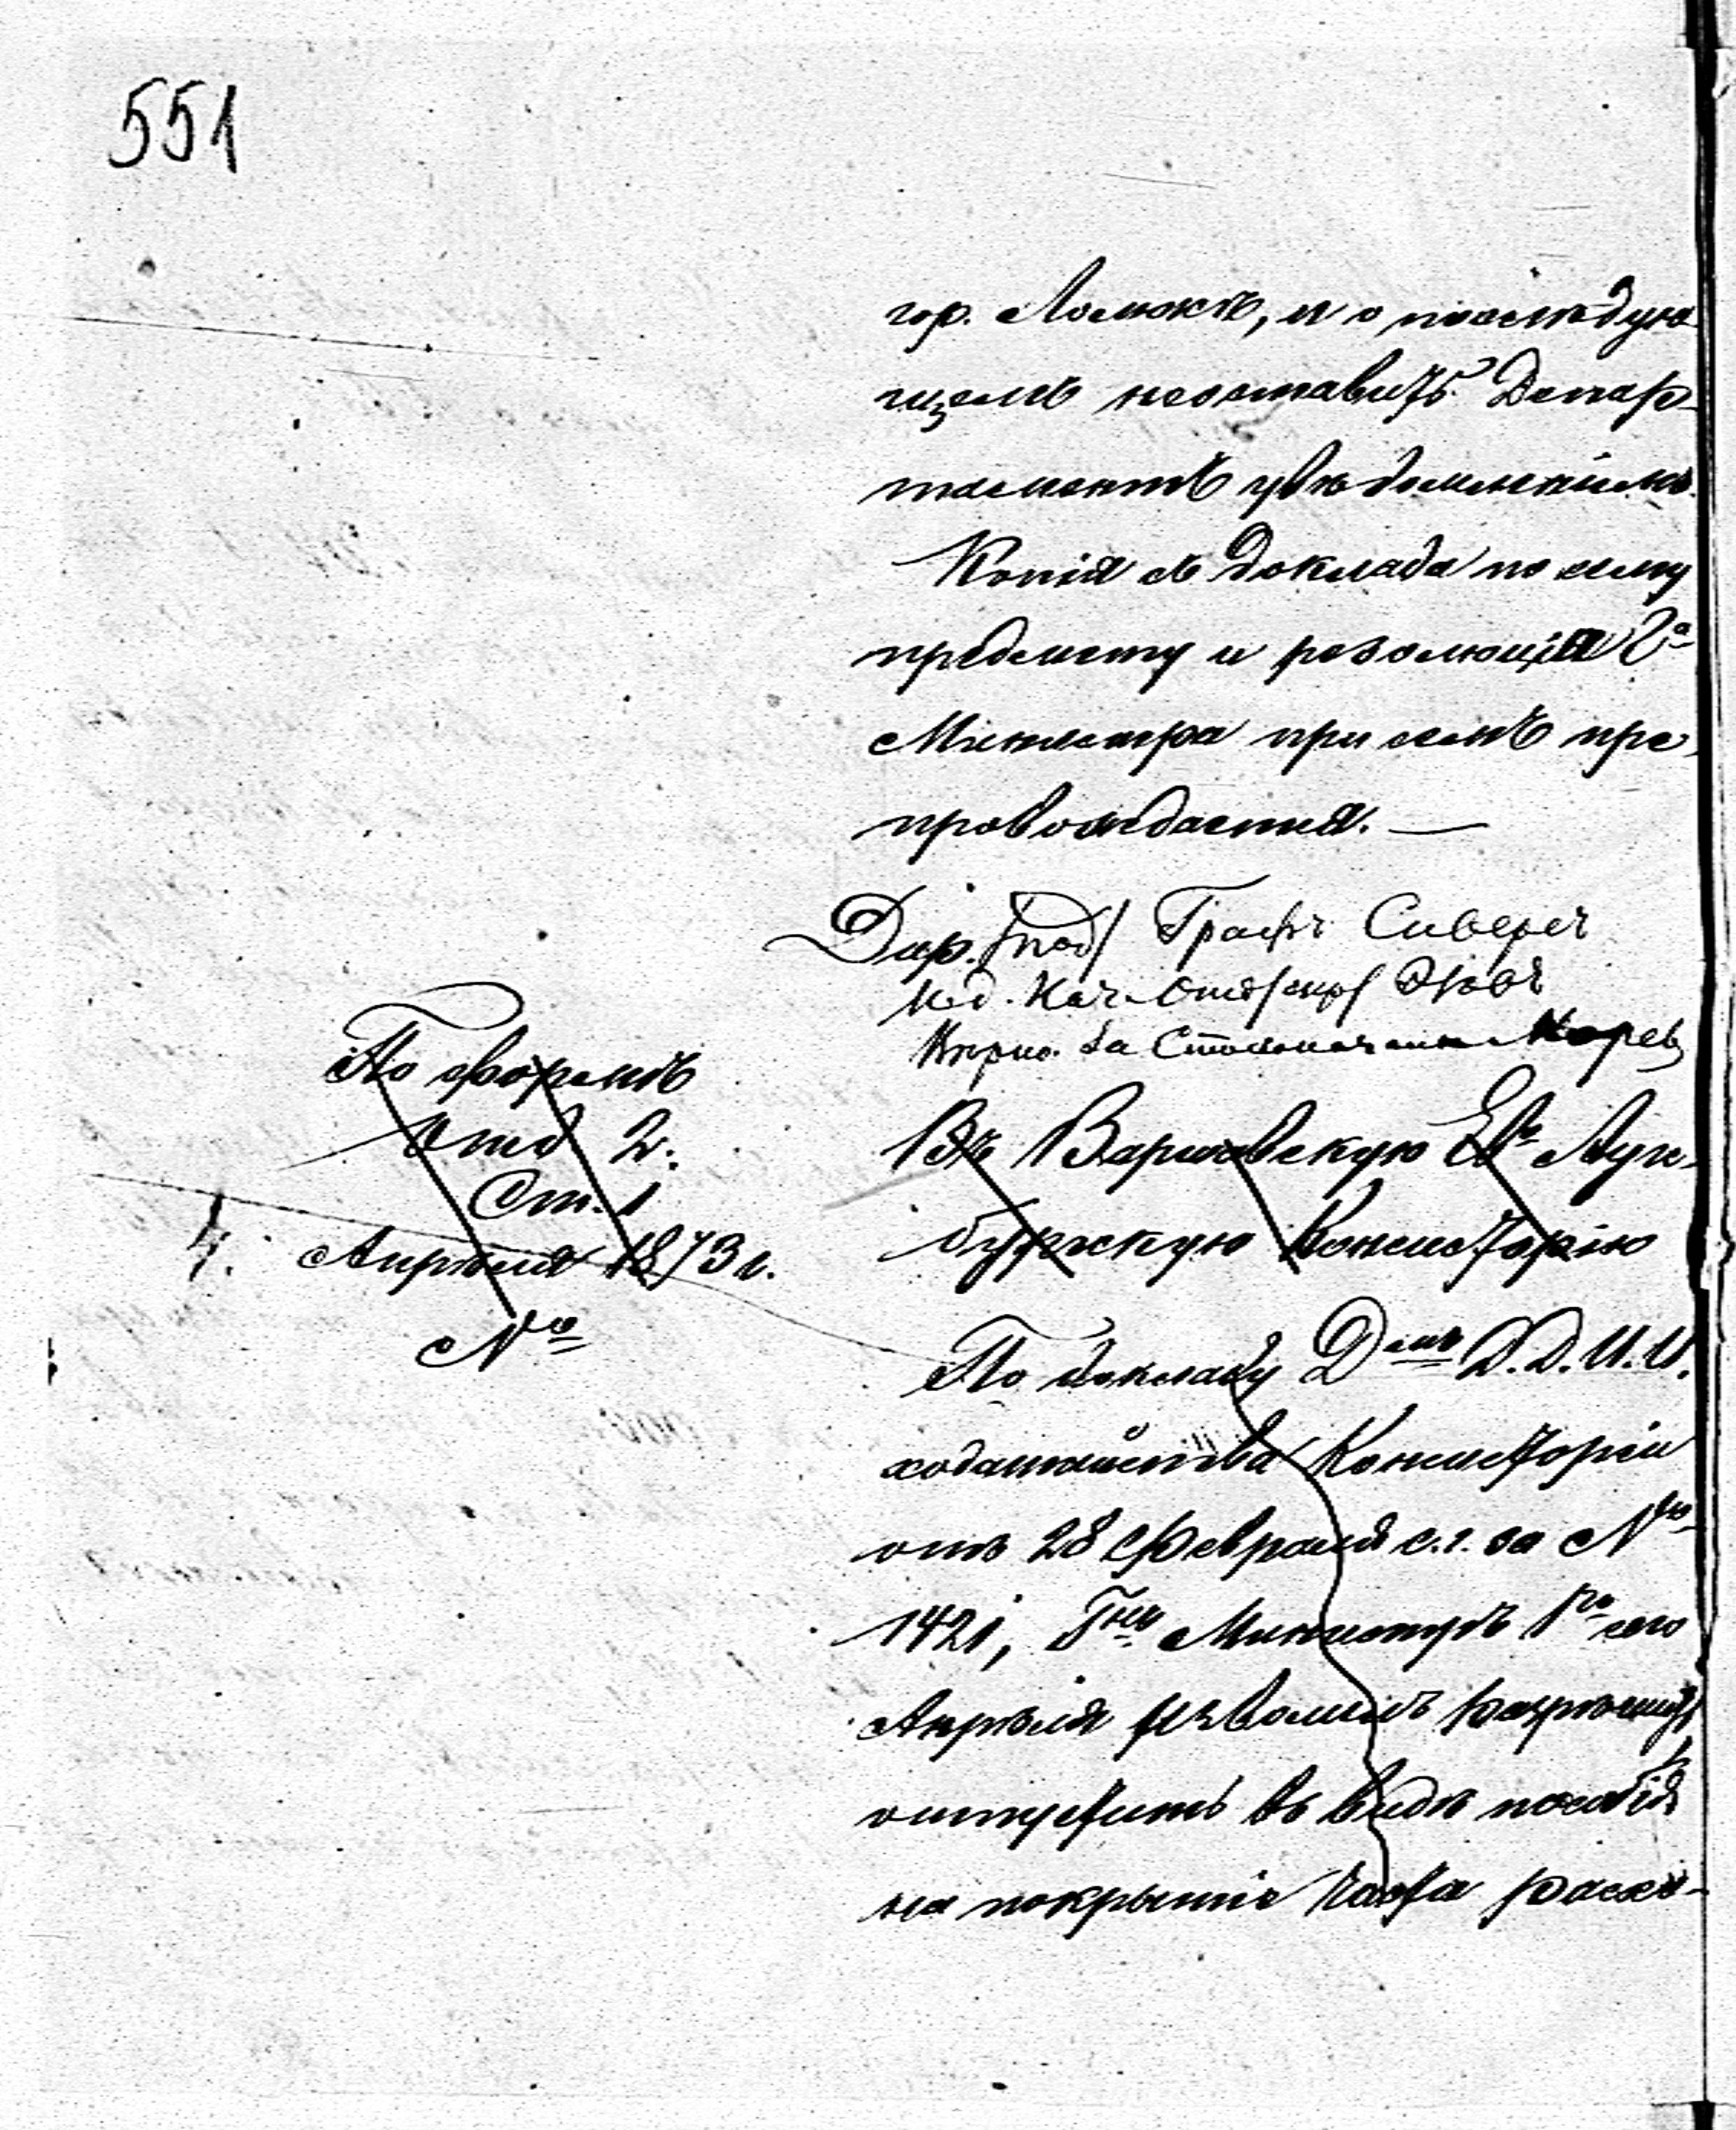 551
гор. Ломжѣ, и о послѣдую-
щемъ неоставить Депар-
таментъ увѣдомленіемъ.
Копія съ доклада по сему
предмету и резолюція Г-а
Министра при семъ пре-
провождается. —
Дир. /под/ Графъ Сиверсъ
Нач. Отд. /скр/
За Столоначальника
По формѣ
Отд 2.
Ст. 1
4. Апрѣля 1873 г.
№
Въ Варшавскую Ев. Аугс-
бургскую Консисторію
По докладу Д-омъ Д.Д.И.И.
ходатайства Консисторіи
отъ 28 Февраля с.г. за №
1421, Г-нъ Министръ 1-го сего
Апрѣля изволилъ разрѣшить
отпустить въ видѣ пособія
на покрытіе части расхо-